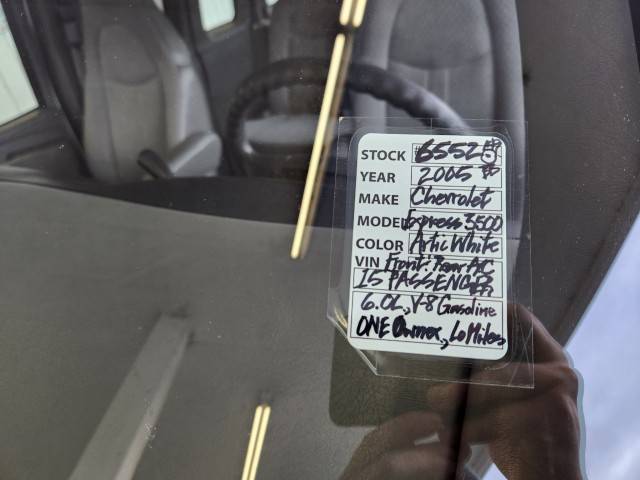 STOCK #65525
YEAR 2005
MAKE Chevrolet
MODEL Express 3500
COLOR Artic White
VIN Front: Rear AC
15 PASSENGER
6.0L, V-8 Gasoline
ONE Owner, Lo Miles